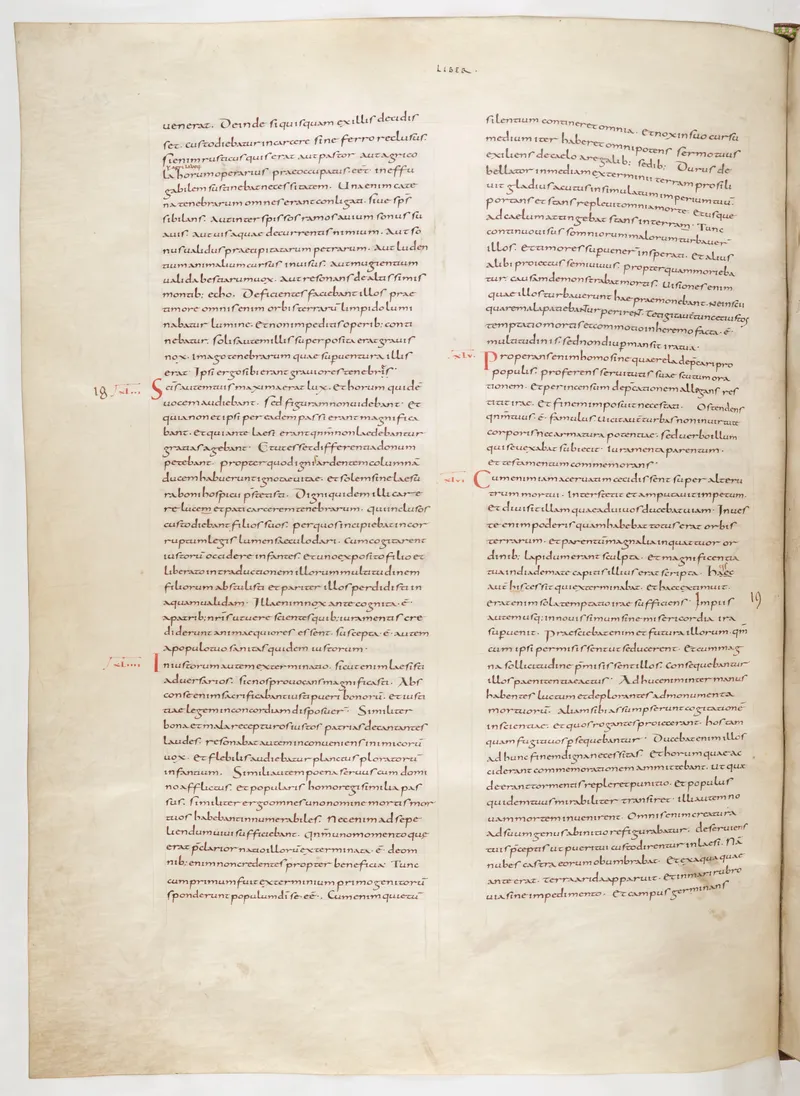 LIBER.
uenerat. Deinde si quisquam ex illis decidis
set. custodiebatur in carcere sine ferro reclusus.
si enim rusticus quis erat aut pastor. aut agrico
laborum operarius praeoccupatus eet ineffu
gabilem sustinebat necessitatem. Una enim cate
na tenebrarum omnes erant conligati. siue sps
sibilans. Aut inter spissos ramos auium sonus su
auis. Aut uis aquae decurrentis nimium. Aut so
nus ualidus praecipitatarum petrarum. Aut luden
tium animalium cursus inuisus. Aut mugientium
ualida bestiarum uox. Aut resonans de altissimis
montib; echo. Deficientes faciebant illos prae
timore omnis enim orbis terrarū limpido lumi
nabatur lumine. et non impeditis operib; conti
nebatur. solis autem illis superposita erat grauis
nox. imago tenebrarum quae superuentura illis
erat. Ipsi ergo sibi erant grauiores tenebris.
18 .xl...
Scis autem tuis maxima erat lux. et horum quidē
uocem audiebant. sed figuram non uidebant. et
quia non et ipsi per eadem passi erant magnifica
bant. et qui ante laesi erant qnm non laedebantur
gratias agebant. et ut esset differentia donum
petebant. propter quod ignis ardentem columnā
ducem habuerunt ignotae uitae. et solem sine laesu
ra boni hospitii p̄stitisti. Digni quidem illi care
re lucem et pati carcerem tenebrarum. qui inclusos
custodiebant filios tuos. per quos incipiebat incor
ruptum legis lumen saeculo dari. Cum cogitarent
iustorū occidere infantes. et uno exposito filio et
liberato in traductionem illorum multitudinem
filiorum abstulisti et pariter illos perdidisti in
aqua ualidam. Illa enim nox ante cognita ē
a patrib; nris ut uere scientes quib; iuramentis cre
diderunt animaequiores essent. suscepta ē autem
a populo tuo sanitas quidem iustorum.
.xl....
Iniustorum autem exterminatio. sicut enim laesisti
aduersarios. sic nos prouocans magnificasti. Abs
conse enim sacrificabant iusti pueri bonorū. et iusti
tiae legem in concordiam disposuer̄. Similiter
bona et mala recepturos iustos patrias decantantes
laudes. resonabat autem inconueniens inimicorū
uox. et flebilis audiebatur planctus ploratorū
infantium. Simili autem poena seruus cum domi
no afflictus. et popularis homo regi similia pas
sus. similiter ergo omnes uno nomine mortis mor
tuos habebant innumerabiles. Nec enim ad sepe
liendum uiui sufficiebant. qnm uno momento que
erat p̄clarior natio illorū exterminata ē. de om
nib; enim non credentes propter beneficia. Tunc
cum primum fuit exterminium primogenitorū
sponderunt populum di se eē. Cum enim quietū
silentium contineret omnia. et nox in suo cursu
medium iter haberet omnipotens sermo tuus
exiliens de caelo a regalib; sedib; Durus de
bellator in mediam exterminii terram prosili
uit gladius acutus insimulatum imperium tuū
portans et stans repleuit omnia morte. et usque
ad caelum attingebat stans in terram. Tunc
continuo uisus somniorum malorum turbauer̄
illos. et timores superuener̄ insperati. et alius
alibi proiectus semiuiuus. propter quam morieba
tur. causam demonstrabat mortis. Uisiones enim
quae illos turbauerunt haec praemonebant. ne inscii
quare mala patiebantur perirent. Tetigit autē tunc et iustos
temptatio mortis et commotio in heremo facta ē
multitudinis sed non diu permansit ira tua.
.xlv.
Properans enim homo sine quaerela depcari pro
populis. proferens seruitutis suae scutum ora
tionem. et per incensum depcationem allegans res
titit irae. et finem imposuit necessitati. Ostendens
qnm tuus ē famulus uicit autē turbas non in uirtute
corporis nec armatura potentiae. sed uerbo illum
qui se uexabat subiecit. iuramenta parentum
et testamentum commemorans.
.xlvi.
Cum enim iam aceruatim cecidissent super alteru
trum mortui. Interstetit et amputauit impetum.
et diuisit illam quae ad uiuos ducebat uiam. In ues
te enim poderis quam habebat totus erat orbis
terrarum. et parentū magnalia in quattuor or
dinib; lapidum erant sculpta. et magnificentia
tua in diademate capitis illius erat scripta. haec
autē his cessit qui exterminabat. et haec extimuit.
erat enim sola temptatio irae sufficiens. Impiis 19
autem usq; in nouissimum sine misericordia ira
superuenit. Praesciebat enim et futura illorum. qm
cum ipsi permisissent ut se ducerent. et cum mag
na sollicitudine p̄misissent illos. consequebantur
illos paenitentiae actus. Adhuc enim inter manus
habentes luctum et deplorantes ad monumenta
mortuorū. Aliam sibi assumpserunt cogitationē
inscientiae. et quos rogantes proiecerant. hos tam
quam fugitiuos psequebantur. Ducebat enim illos
ad hunc finem digna necessitas. et horum quae ac
ciderant commemorationem ammittebant. ut quae
deerant tormentis repleret punitio. et populus
quidem tuus mirabiliter transiret. illi autem no
uam mortem inuenirent. Omnis enim creatura
ad suum genus ab initio refigurabatur. deseruiens
tuis p̄ceptis ut pueri tui custodirentur inlaesi. Nā
nubes castra eorum obumbrabat. et ex aqua quae
ante erat. terra arida apparuit. et in mari rubro
uia sine impedimento. et campus germinans